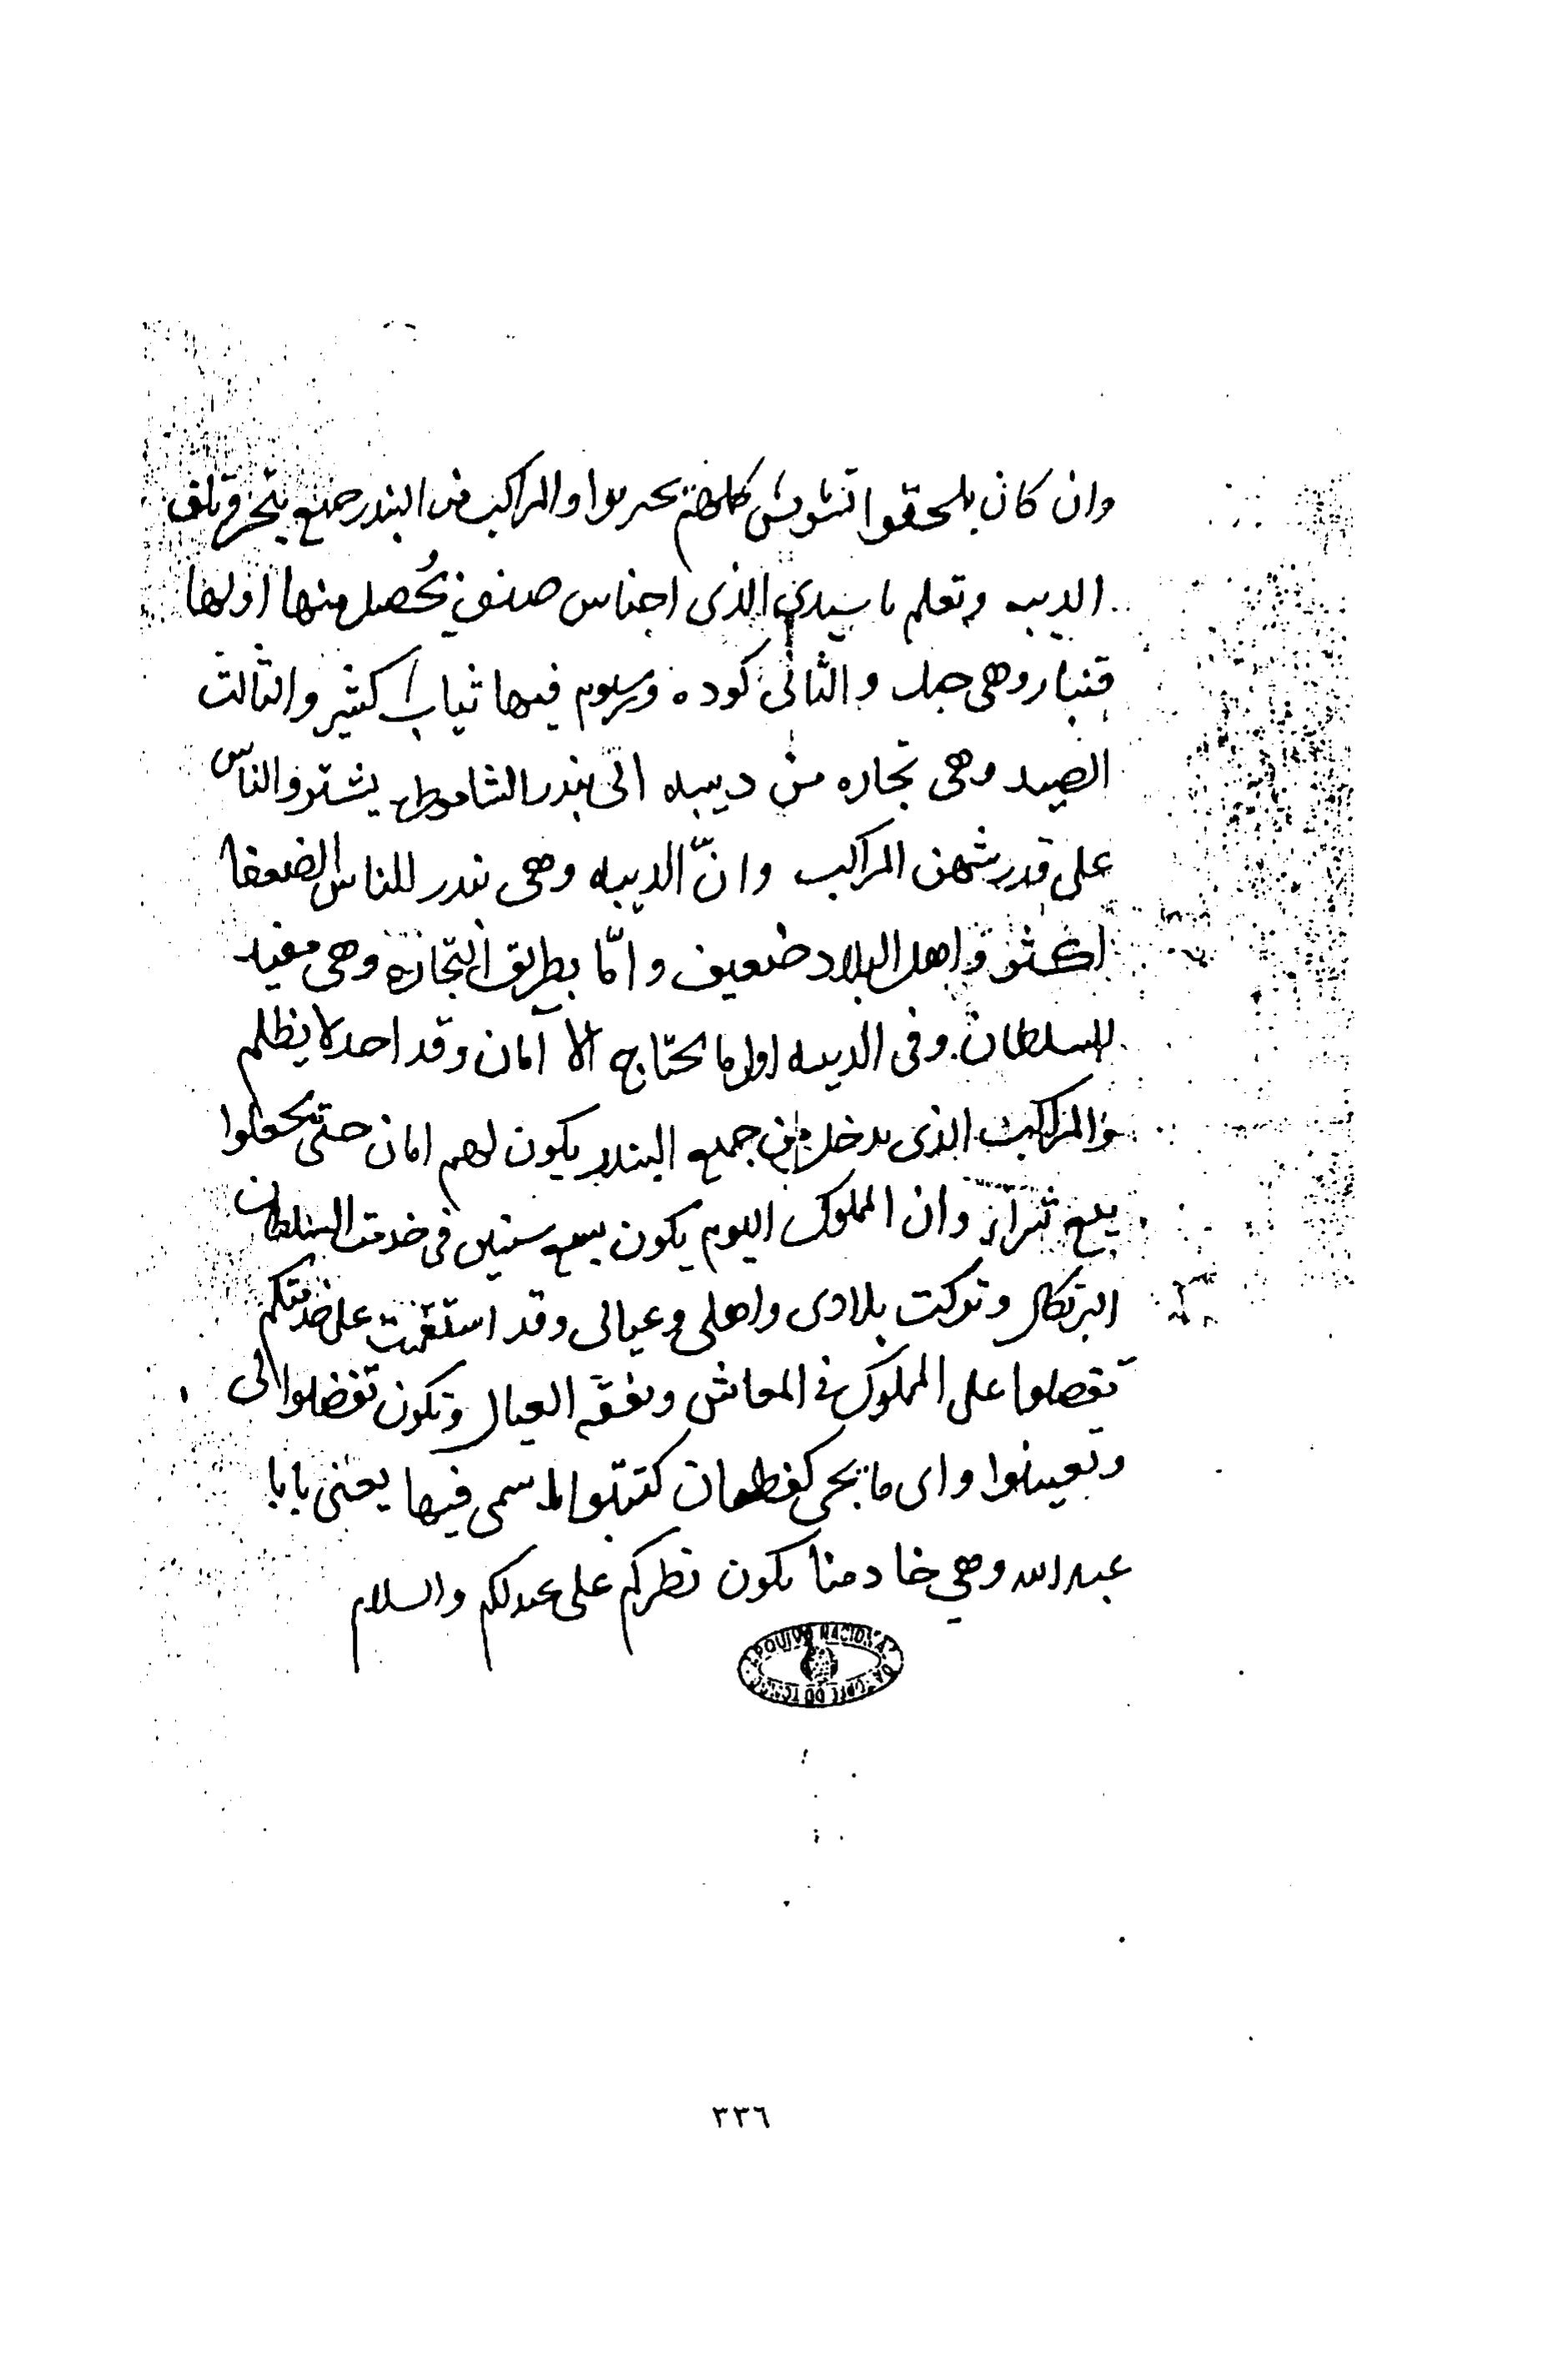 وان كان يلحقوا تشويش كلهم والمراكب من البندر جميع
الديبه وتعلم يا سيدي الذى اجناس صنفين يحصل منها اولها
قنبار وهى حبل والثانى كوده وسيوم فيها ثياب كثير والثالث
الصيد وهى تجاره من ديبه الى بندر الشاموطره يشترو الناس
على قدر شهن المراكب وانّ الديبه وهى بندر للناس الضعفا
اكثر واهل البلاد ضعيف وامّا بطريق التجارة وهى مفيد
للسلطان وفى الديبه اول ما يحتاج الا امان وقد احد لا يظلم
والمراكب الذى يدخل من جميع البندر يكون لهم امان حتى يجعلوا
بيع شراء وان المملوك اليوم يكون سنين فى خدمت السلطان
البرتكال وتركت بلادى واهلى وعيالى وقد استقمت على خدمتكم
تفضلوا على المملوك في المعاش ونفقه العيال وتكون تفضلوا الى
وتعينوا واى ما يجى كتبتوا اسمى فيها يعنى بابا
عبد الله وهي خادمنا يكون نظركم على عبدكم والسلام
ARQUIVO NACIONAL DA TORRE DO TOMBO
٣٣٦